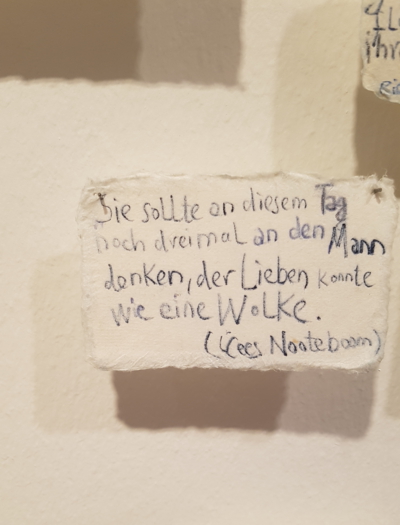 Sie sollte an diesem Tag
noch dreimal an den Mann
denken, der Lieben konnte
wie eine Wolke.
(Cees Nooteboom)
ihr